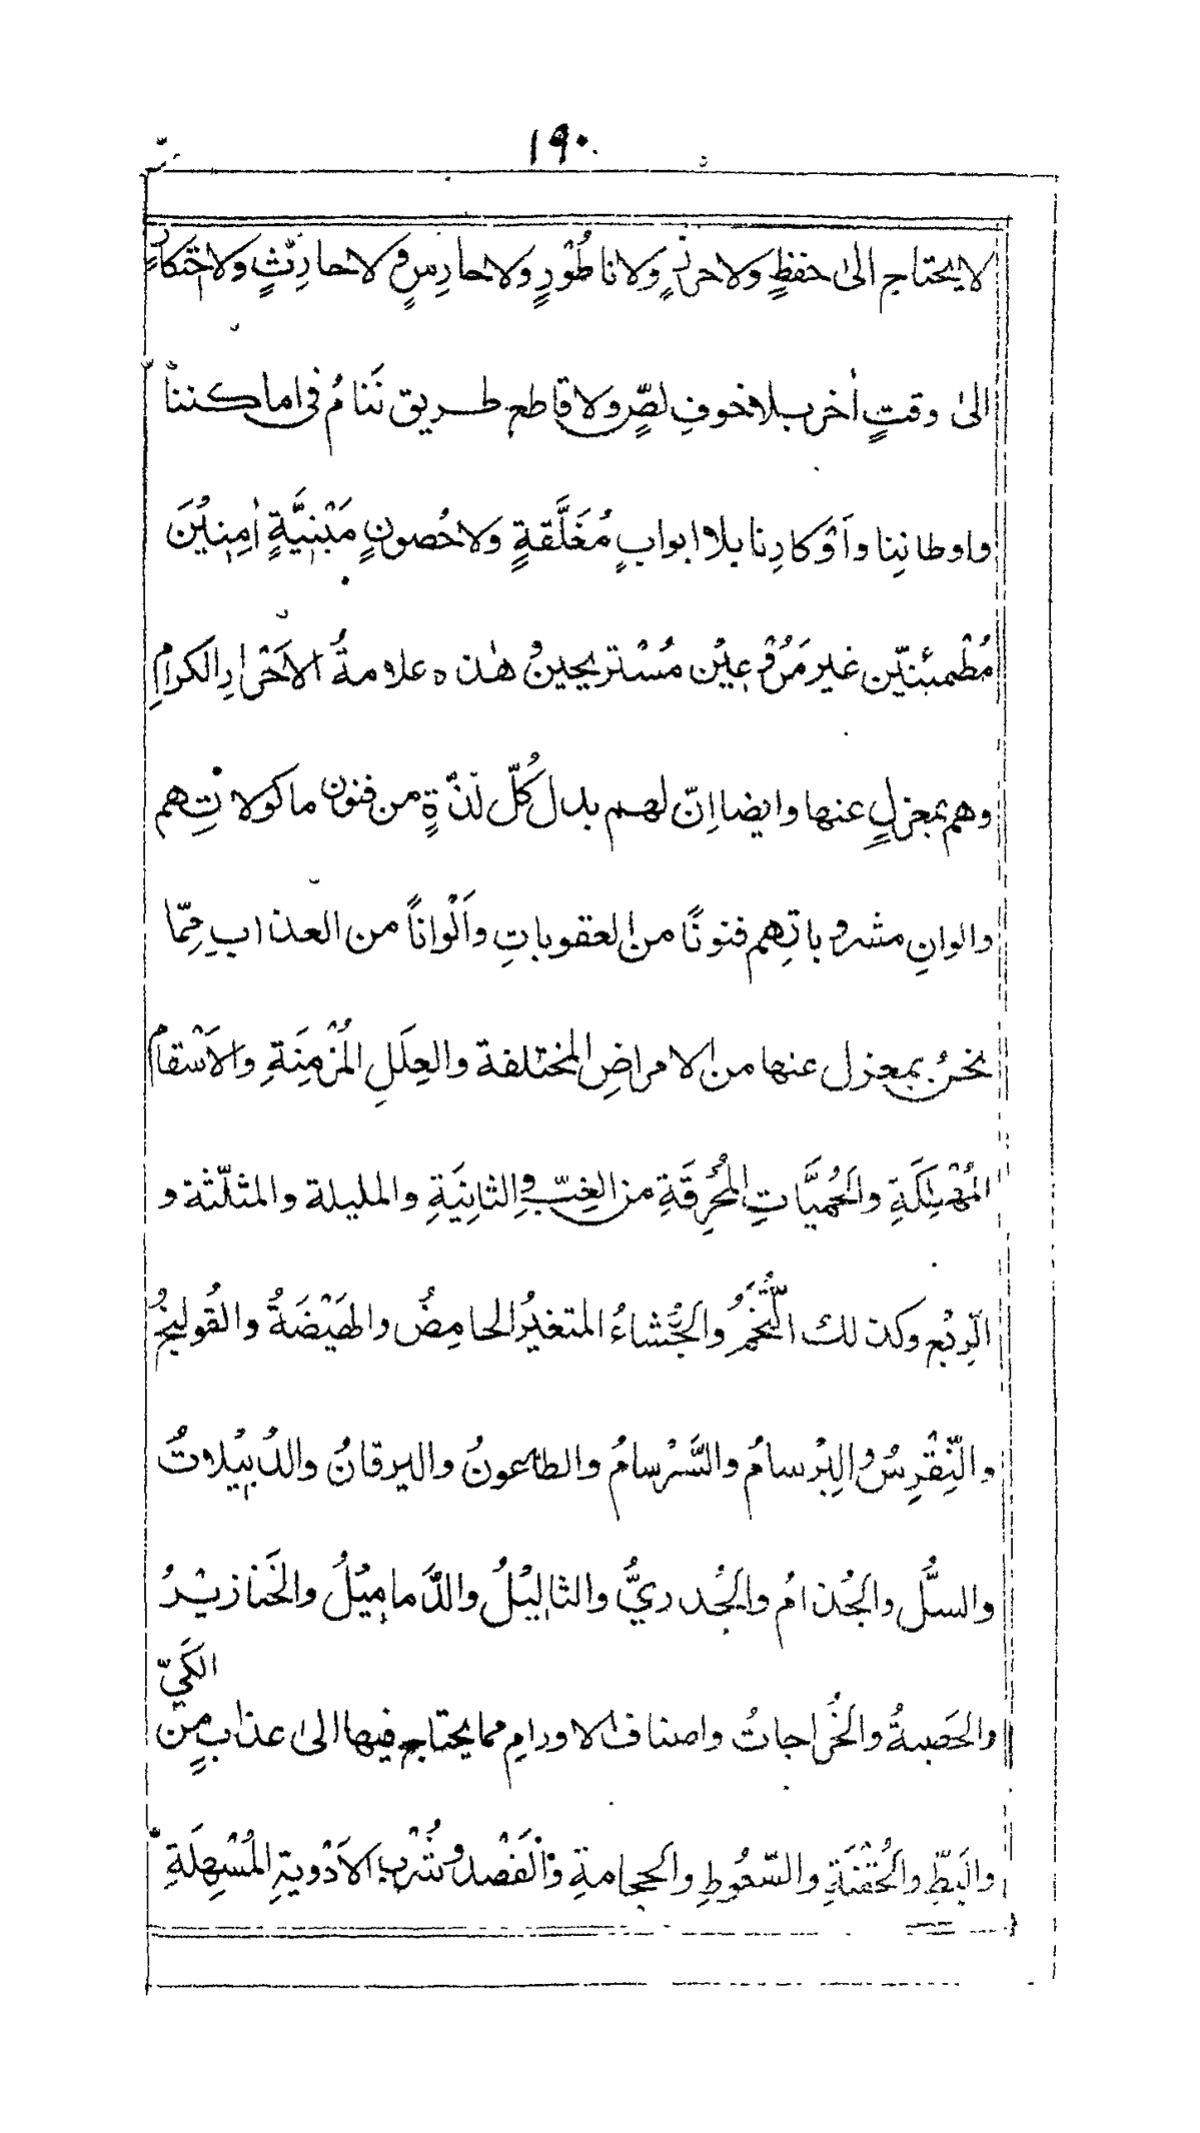 ١٩٠
لا يحتاج الىٰ حفظٍ ولا حرزٍ ولا ناطُوْرٍ ولا حارِسٍ ولا حارِثٍ ولا احتكارٍ
الىٰ وقتٍ اٰخر بلا خوفِ لصٍّ ولا قاطع طريق نَنامُ فى اماكننا
واوطانِنا واَوْكارِنا بلا ابوابٍ مُغَلَّقةٍ ولا حُصونٍ مَبْنِيَّةٍ اٰمِنِيْنَ
مُطْمئنّين غير مَرُوْعِيْن مُسْتريحِيْنَ هٰذه علامةُ الاَحْرارِ الكرامِ
وهم بمعزلٍ عنها وايضا اِنّ لهم بدل كُلّ لذّةٍ من فنون ماكولاتِهم
والوانِ مشروباتِهم فنونًا من العقوباتِ واَلْوانًا من العذابِ مِمّا
نحنُ بمعزل عنها من الامراضِ المختلفة والعِلَلِ المُزْمِنَةِ والاَسْقامِ
المُهْلِكَةِ والحُمِيَّاتِ المُحْرِقَةِ من الغِبّ والثانِيَةِ والمليلة والمثلّثة و
الرِّبْع وكذلك التُّخَمُ والجُشاءُ المتغيرُ الحامِضُ والهَيْضَةُ والقُولنجُ
والنِّقْرِسُ والبِرْسامُ والسَّرْسامُ والطاعونُ واليرقانُ والدُبيْلاتُ
والسلُّ والجُذامُ والجُدريُّ والثاليْلُ والدَّماميْلُ والخَنازيْرُ
والحَصبةُ والخُراجاتُ واصناف الاورامِ مما يحتاج فيها الىٰ عذابٍ مِن الكَيّ
والبَطِّ والحُقْنَةِ والسّعُوطِ والحجامةِ والْفَصْد وشُرْب الاَدْويةِ المُسْهِلَةِ